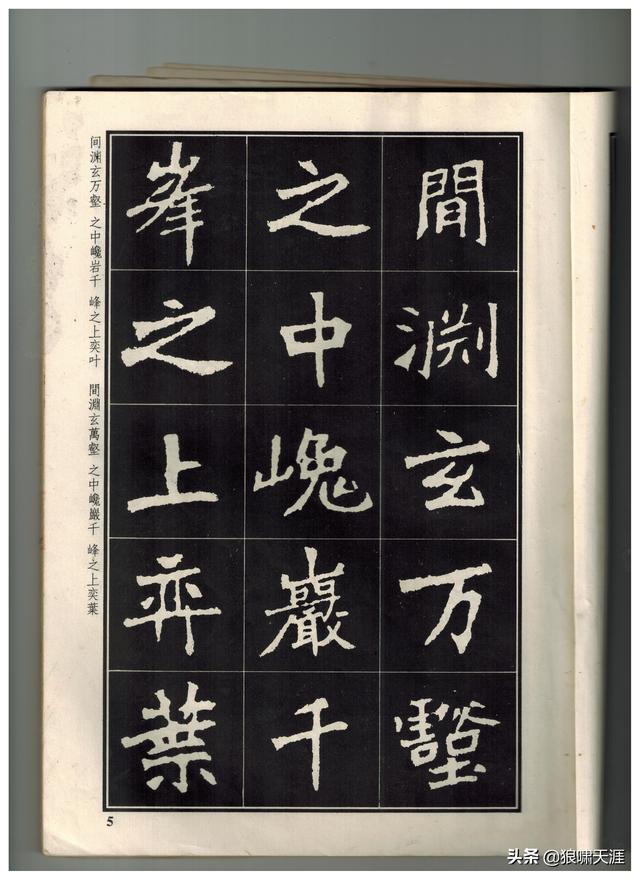 間渊玄万壑
之中巉巖千
峯之上弈葉
间渊玄万壑 之中巉岩千 峰之上奕叶 間淵玄萬壑 之中巉巖千 峰之上奕葉
5
头条 @狼啸天涯